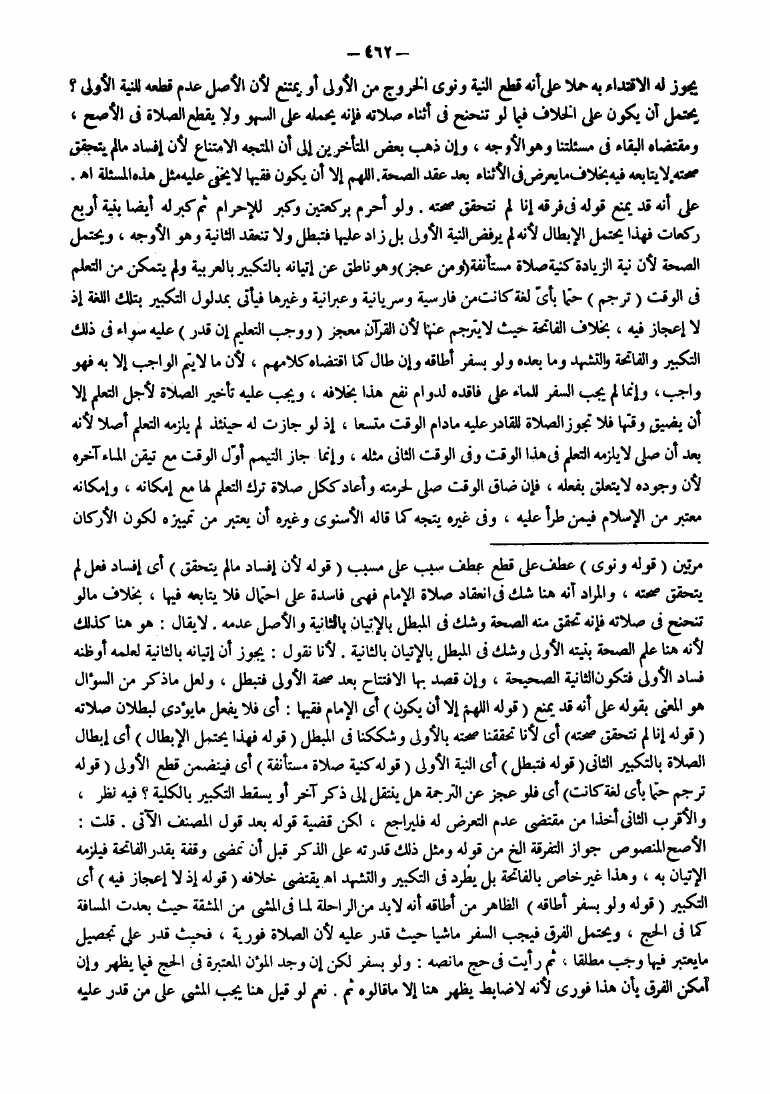 — ٤٦٢ —
يجوز له الاقتداء به حملا على أنه قطع النية ونوى الخروج من الأولى أو يمتنع لأن الأصل عدم قطعه للنية الأولى ؟
يحتمل أن يكون على الخلاف فيما لو تنحنح فى أثناء صلاته فإنه يحمله على السهو ولا يقطع الصلاة فى الأصح ،
ومقتضاه البقاء فى مسئلتنا وهو الأوجه ، وإن ذهب بعض المتأخرين إلى أن المتجه الامتناع لأن إفساد مالم يتحقق
صحته لا يتابعه فيه بخلاف مايعرض فى الأثناء بعد عقد الصحة. اللهم إلا أن يكون فقيها لايخفى عليه مثل هذه المسئلة اه .
على أنه قد يمنع قوله فى فرقه إنا لم نتحقق صحته . ولو أحرم بركعتين وكبر للإحرام ثم كبر له أيضا بنية أربع
ركعات فهذا يحتمل الإبطال لأنه لم يرفض النية الأولى بل زاد عليها فتبطل ولا تنعقد الثانية وهو الأوجه ، ويحتمل
الصحة لأن نية الزيادة كنية صلاة مستأنفة (ومن عجز) وهو ناطق عن إتيانه بالتكبير بالعربية ولم يتمكن من التعلم
فى الوقت ( ترجم ) حتما بأىّ لغة كانت من فارسية وسريانية وعبرانية وغيرها فيأتى بمدلول التكبير بتلك اللغة إذ
لا إعجاز فيه ، بخلاف الفاتحة حيث لايترجم عنها لأن القرآن معجز ( ووجب التعلم إن قدر ) عليه سواء فى ذلك
التكبير والفاتحة والتشهد وما بعده ولو بسفر أطاقه وإن طال كما اقتضاه كلامهم ، لأن ما لايتم الواجب إلا به فهو
واجب، وإنما لم يجب السفر للماء على فاقده لدوام نفع هذا بخلافه ، ويجب عليه تأخير الصلاة لأجل التعلم إلا
أن يضيق وقتها فلا تجوز الصلاة للقادر عليه مادام الوقت متسعا ، إذ لو جازت له حينئذ لم يلزمه التعلم أصلا لأنه
بعد أن صلى لايلزمه التعلم فى هذا الوقت وفى الوقت الثانى مثله ، وإنما جاز التيمم أوّل الوقت مع تيقن الماء آخره
لأن وجوده لايتعلق بفعله ، فإن ضاق الوقت صلى لحرمته وأعاد ككل صلاة ترك التعلم لها مع إمكانه ، وإمكانه
معتبر من الإسلام فيمن طرأ عليه ، وفى غيره يتجه كما قاله الأسنوى وغيره أن يعتبر من تمييزه لكون الأركان
مرتين ( قوله ونوى ) عطف على قطع عطف سبب على مسبب ( قوله لأن إفساد مالم يتحقق ) أى إفساد فعل لم
يتحقق صحته ، والمراد أنه هنا شك فى انعقاد صلاة الإمام فهى فاسدة على احتمال فلا يتابعه فيها ، بخلاف مالو
تنحنح فى صلاته فإنه تحقق منه الصحة وشك فى المبطل بالإتيان بالثانية والأصل عدمه . لايقال : هو هنا كذلك
لأنه هنا علم الصحة بنيته الأولى وشك فى المبطل بالإتيان بالثانية . لأنا نقول : يجوز أن إتيانه بالثانية لعلمه أوظنه
فساد الأولى فتكون الثانية الصحيحة ، وإن قصد بها الافتتاح بعد صحة الأولى فتبطل ، ولعل ماذكر من السؤال
هو المعنى بقوله على أنه قد يمنع ( قوله اللهم إلا أن يكون ) أى الإمام فقيها : أى فلا يفعل مايؤدى لبطلان صلاته
( قوله إنا لم نتحقق صحته) أى لأنا تحققنا صحته بالأولى وشككنا فى المبطل ( قوله فهذا يحتمل الإبطال ) أى إبطال
الصلاة بالتكبير الثانى( قوله فتبطل ) أى النية الأولى ( قوله كنية صلاة مستأنفة ) أى فيتضمن قطع الأولى ( قوله
ترجم حتما بأى لغة كانت) أى فلو عجز عن الترجمة هل ينتقل إلى ذكر آخر أو يسقط التكبير بالكلية ؟ فيه نظر ،
والأقرب الثانى أخذا من مقتضى عدم التعرض له فليراجع ، لكن قضية قوله بعد قول المصنف الآتى . قلت :
الأصح المنصوص جواز التفرقة الخ من قوله ومثل ذلك قدرته على الذكر قبل أن تمضى وقفة بقدر الفاتحة فيلزمه
الإتيان به ، وهذا غير خاص بالفاتحة بل يطرد فى التكبير والتشهد اه يقتضى خلافه ( قوله إذ لا إعجاز فيه ) أى
التكبير ( قوله ولو بسفر أطاقه ) الظاهر من أطاقه أنه لابد من الراحلة لما فى المشى من المشقة حيث بعدت المسافة
كما فى الحج ، ويحتمل الفرق فيجب السفر ماشيا حيث قدر عليه لأن الصلاة فورية ، فحيث قدر على تحصيل
مايعتبر فيها وجب مطلقا ، ثم رأيت فى حج مانصه : ولو بسفر لكن إن وجد المؤن المعتبرة فى الحج فيما يظهر وإن
أمكن الفرق بأن هذا فورى لأنه لاضابط يظهر هنا إلا ماقالوه ثم . نعم لو قيل هنا يجب المشى على من قدر عليه